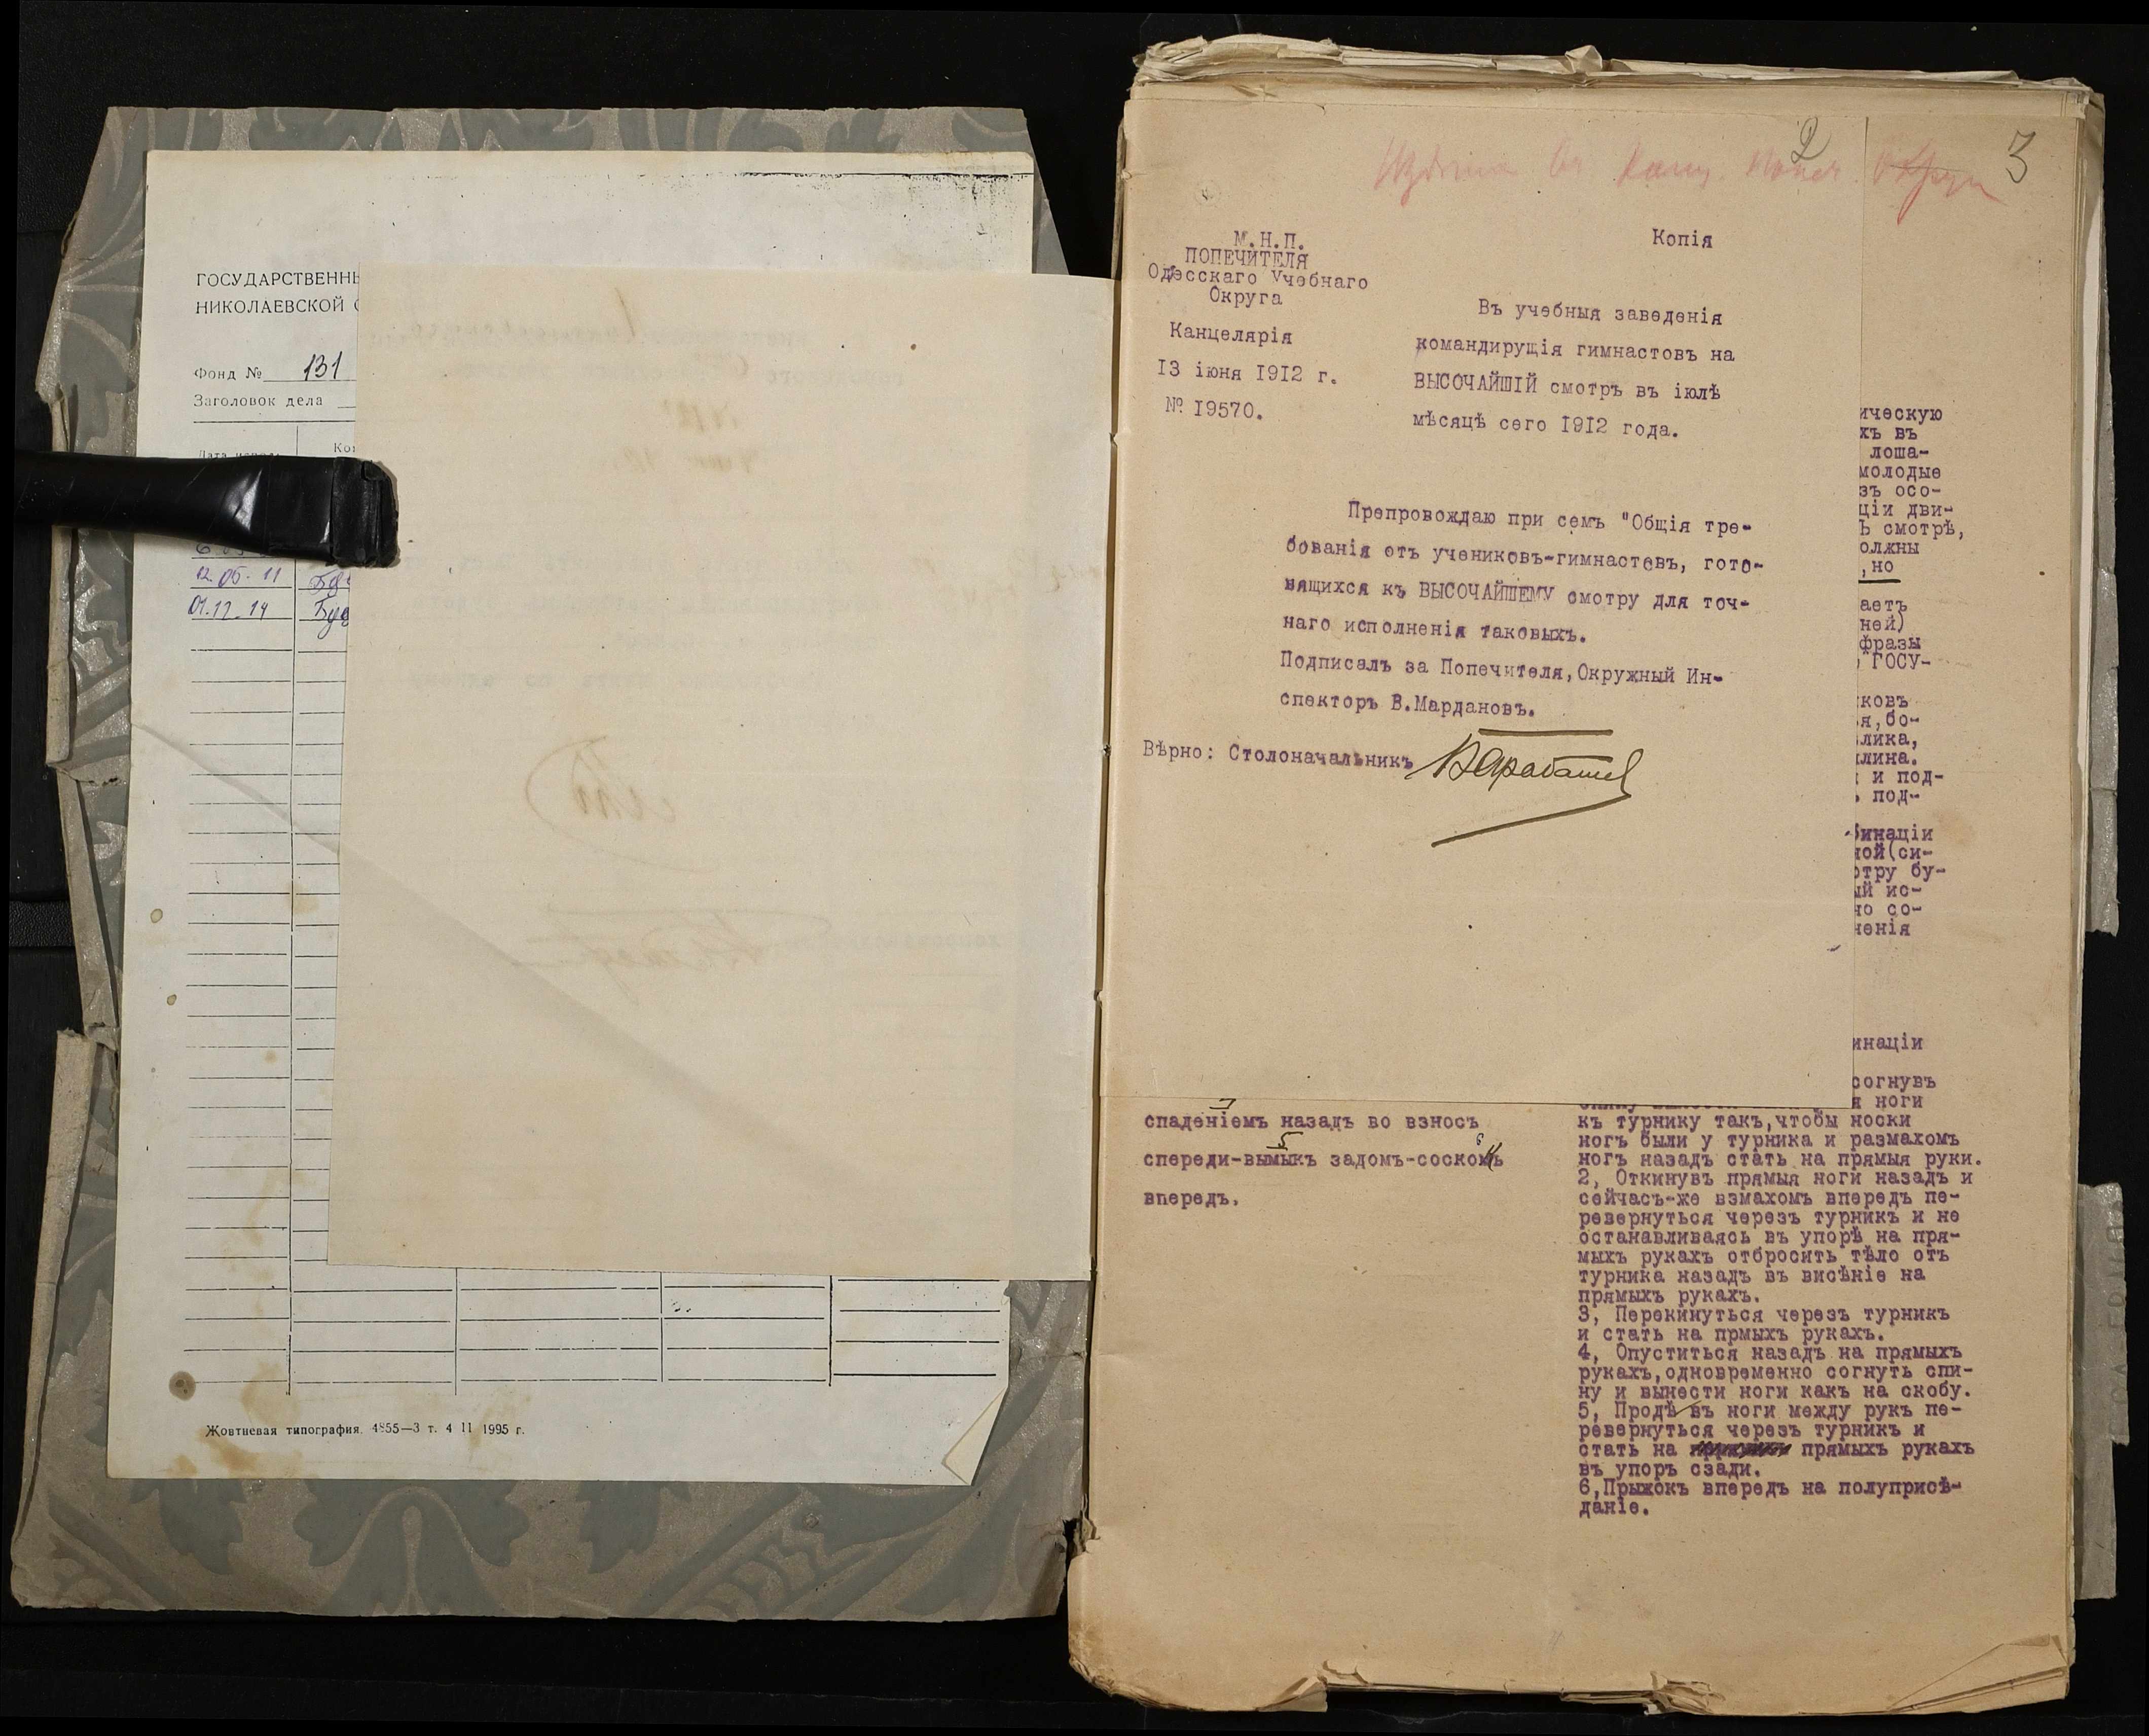 ГОСУДАРСТВЕННЫ
НИКОЛАЕВСКОЙ О
Фонд № 131
Заголовок дела
12.05.11
01.12.14
Жовтневая типография. 4855—3 т. 4 11 1995 г.
2
3
Копія
М.Н.П.
ПОПЕЧИТЕЛЯ
Одесскаго Учебнаго
Округа
Канцелярія
13 іюня 1912 г.
№ 19570.
Въ учебныя заведенія
командирущія гимнастовъ на
ВЫСОЧАЙШІЙ смотръ въ іюлѣ
мѣсяцѣ сего 1912 года.
Препровождаю при семъ "Общія тре-
бованія отъ учениковъ-гимнастовъ, гото-
вящихся къ ВЫСОЧАЙШЕМУ смотру для точ-
наго исполненія таковыхъ.
Подписалъ за Попечителя,Окружный Ин-
спекторъ В.Мардановъ.
Вѣрно: Столоначальникъ
ическую
хъ въ
лоша-
молодые
зъ осо-
ціи дви-
ъ смотрѣ,
олжны
,но
аетъ
ней)
фразы
ГОСУ-
ковъ
я,бо-
лика,
лина.
и под-
под-
бинаціи
ной(си-
отру бу-
ый ис-
но со-
ненія
инаціи
согнувъ
я ноги
спаденіемъ назадъ во взносъ
5 6
спереди-вымыкъ задомъ-соскокъ
впередъ.
къ турнику такъ,чтобы носки
ногъ были у турника и размахомъ
ногъ назадъ стать на прямыя руки.
2, Откинувъ прямыя ноги назадъ и
сейчасъ-же взмахомъ впередъ пе-
ревернуться черезъ турникъ и не
останавливаясь въ упорѣ на пря-
мыхъ рукахъ отбросить тѣло отъ
турника назадъ въ висѣніе на
прямыхъ рукахъ.
3, Перекинуться черезъ турникъ
и стать на прмыхъ рукахъ.
4, Опуститься назадъ на прямыхъ
рукахъ,одновременно согнуть спи-
ну и вынести ноги какъ на скобу.
5, Продѣвъ ноги между рукъ пе-
ревернуться черезъ турникъ и
стать на прямыхъ рукахъ
въ упоръ сзади.
6,Прыжокъ впередъ на полуприсѣ-
даніе.